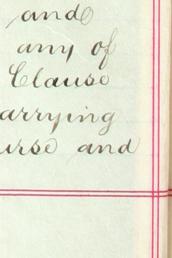 and
any of
Clause
arrying
urse and